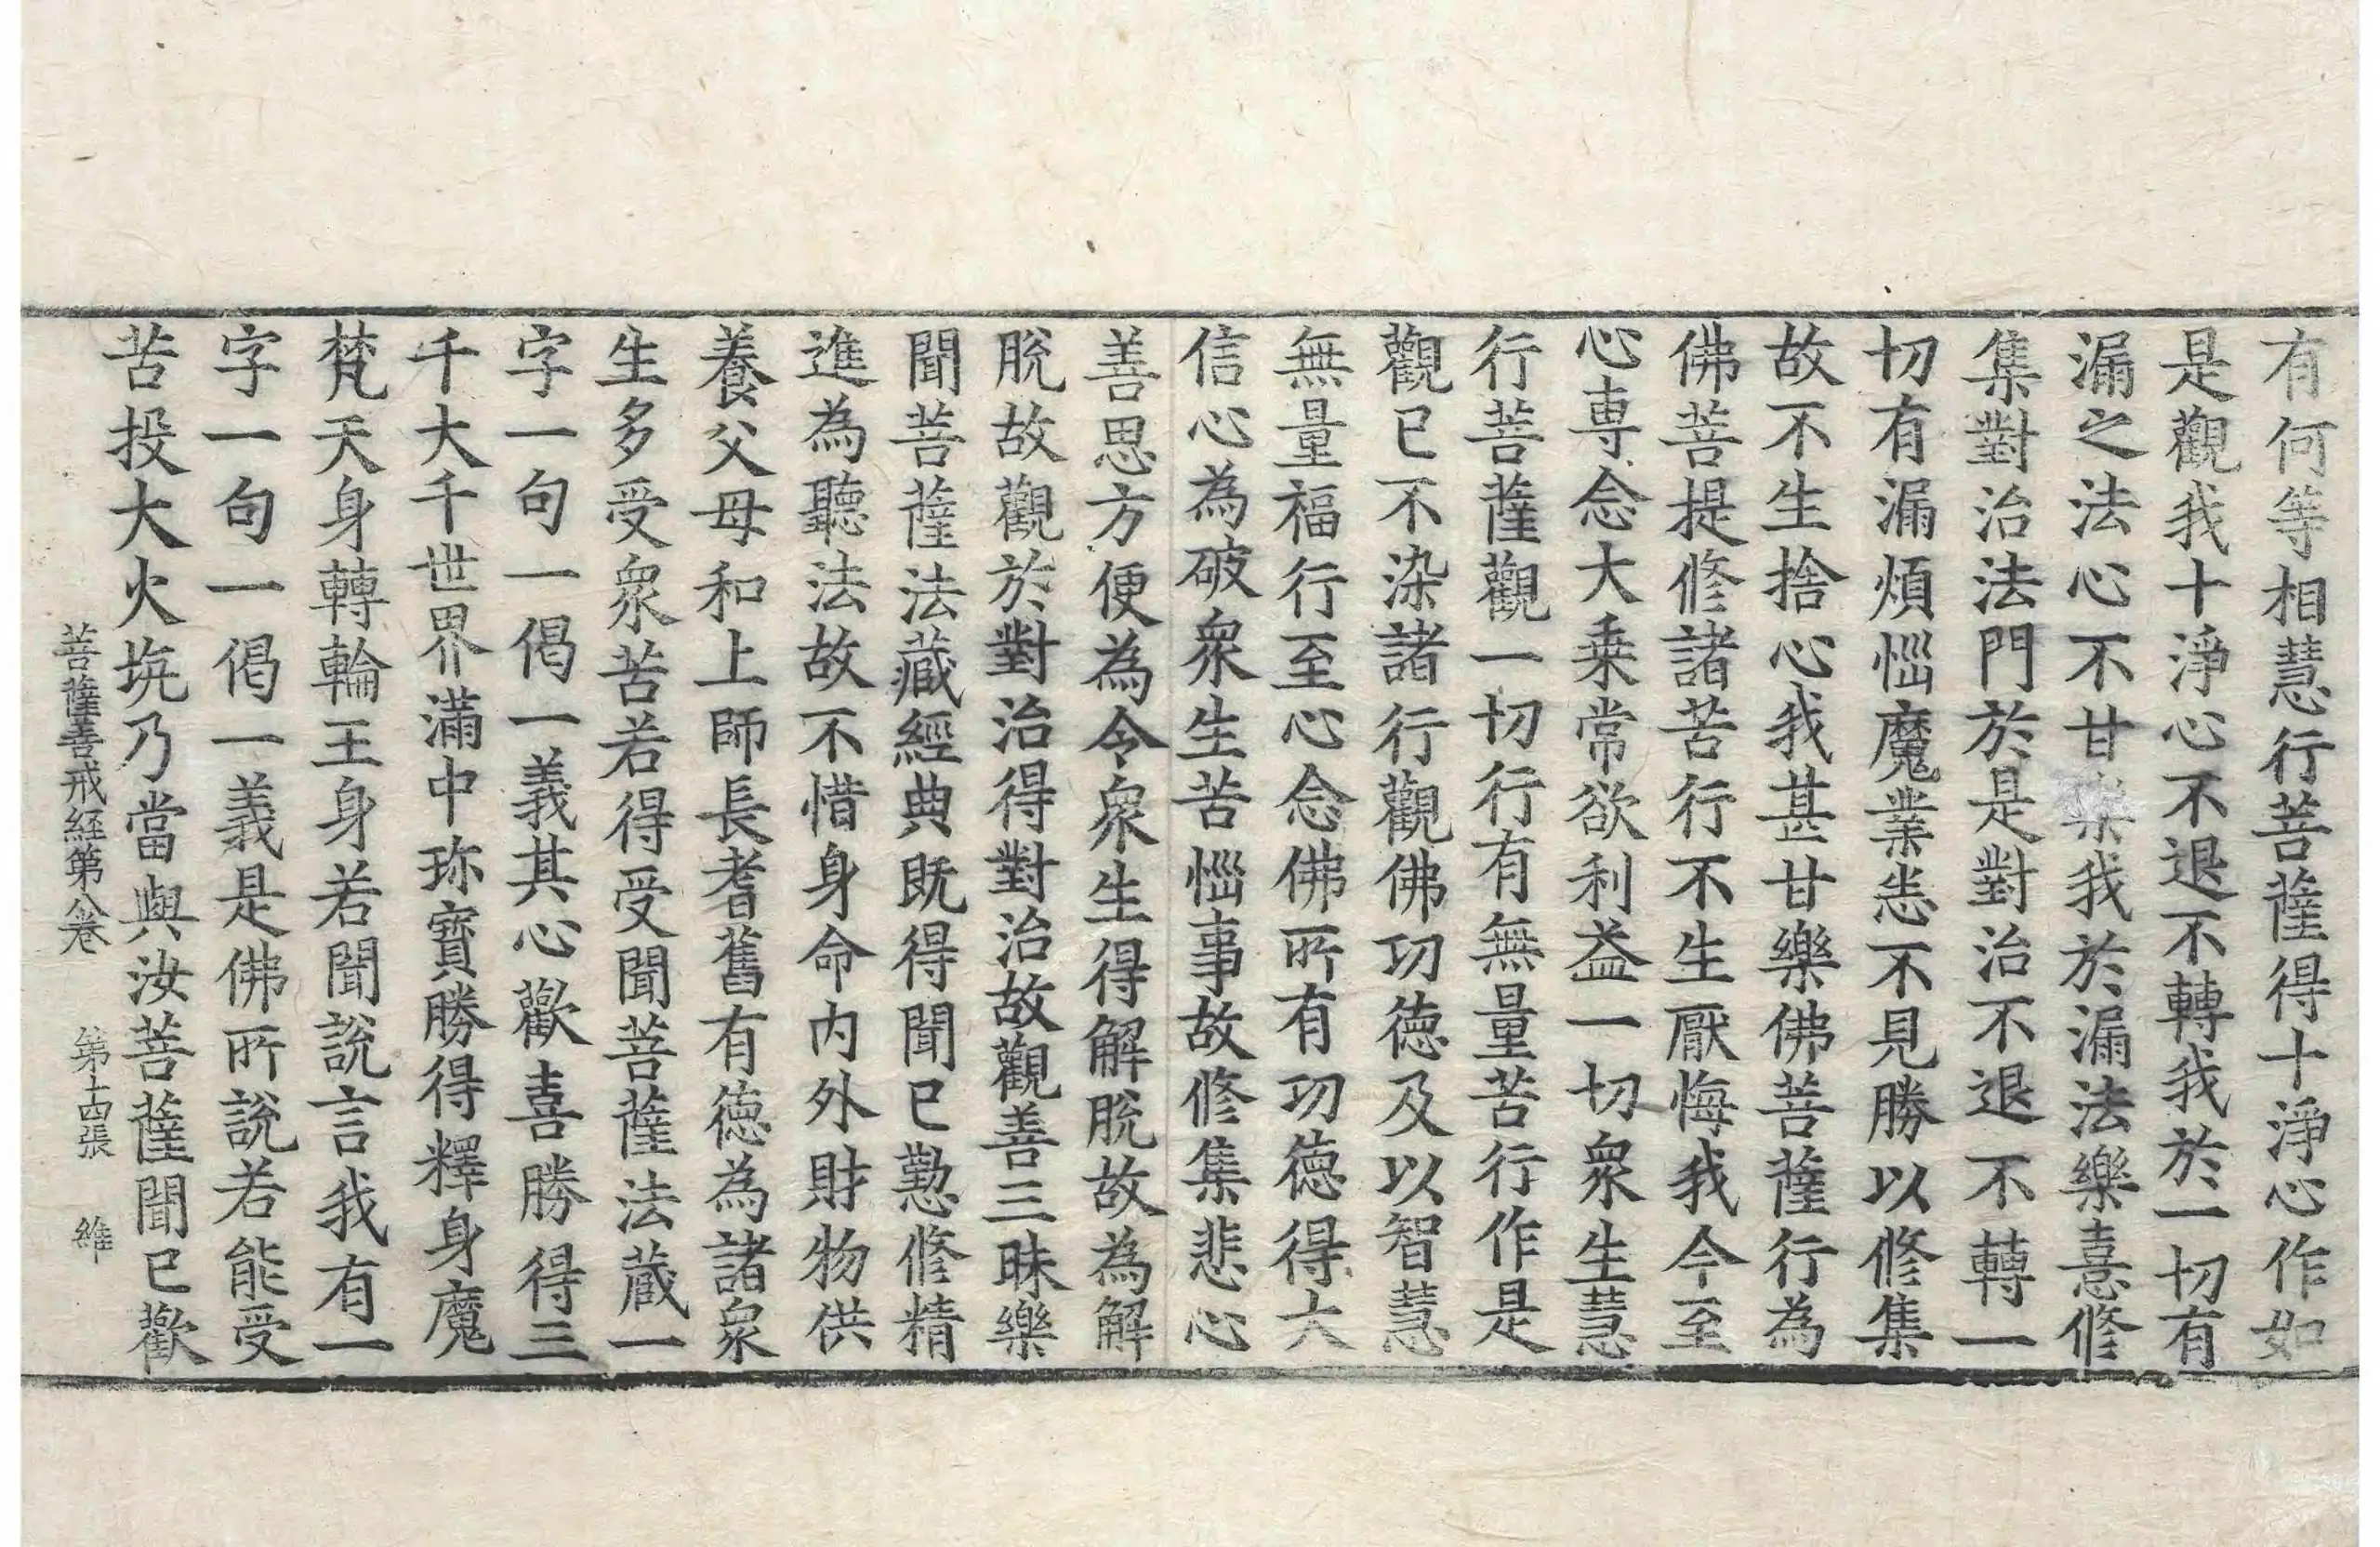 有何等相慧行菩薩得十淨心作如
是觀我十淨心不退不轉我於一切有
漏之法心不甘樂我於漏法樂憙修
集對治法門於是對治不退不轉一
切有漏煩惱魔業恙不見勝以修集
故不生捨心我甚甘樂佛菩薩行為
佛菩提修諸苦行不生厭悔我今至
心専念大乗常欲利益一切衆生慧
行菩薩觀一切行有無量苦行作是
觀已不染諸行觀佛功徳及以智慧
無量福行至心念佛所有功徳得大
信心為破衆生苦惱事故修集悲心
善思方便為令衆生得解脫故為解
脫故觀於對治得對治故觀善三昧樂
聞菩薩法藏經典既得聞已懃修精
進為聽法故不惜身命内外財物供
養父母和上師長耆舊有徳為諸衆
生多受衆苦若得受聞菩薩法蔵一
字一句一偈一義其心歡喜勝得三
千大千世界滿中珎寶勝得釋身魔
梵天身轉輪王身若聞說言我有一
字一句一偈一義是佛所說若能受
苦投大火坑乃當與汝菩薩聞已歡
菩薩善戒経第八卷　第十四張　維